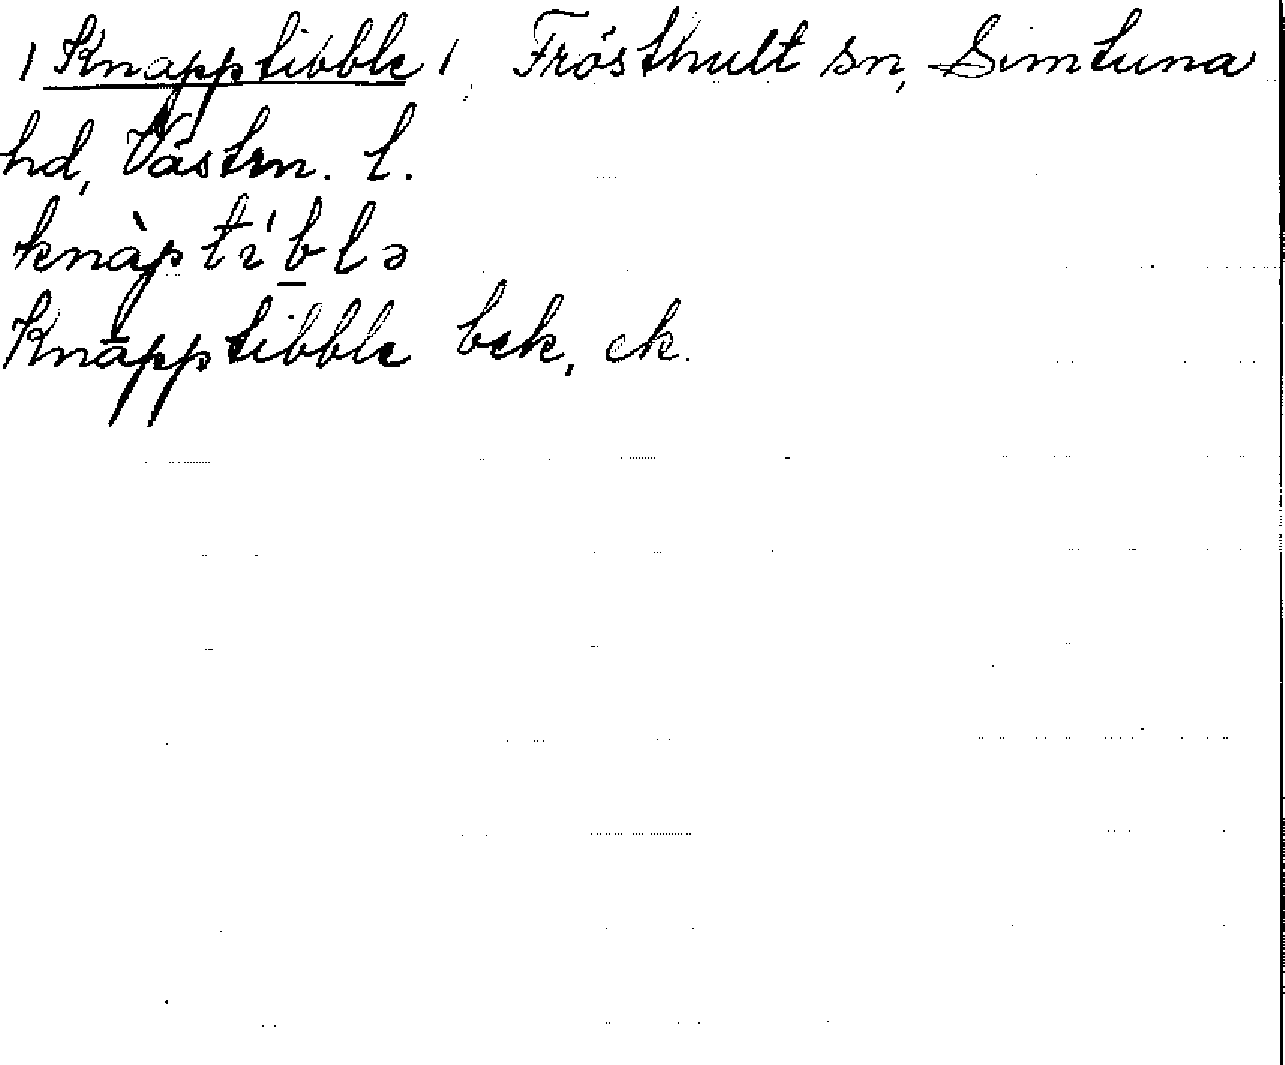 / Knapptibble / Frösthult sn, Simtuna
hd, Västm. l.
knàptíblə
Knapptibble bek, ek.